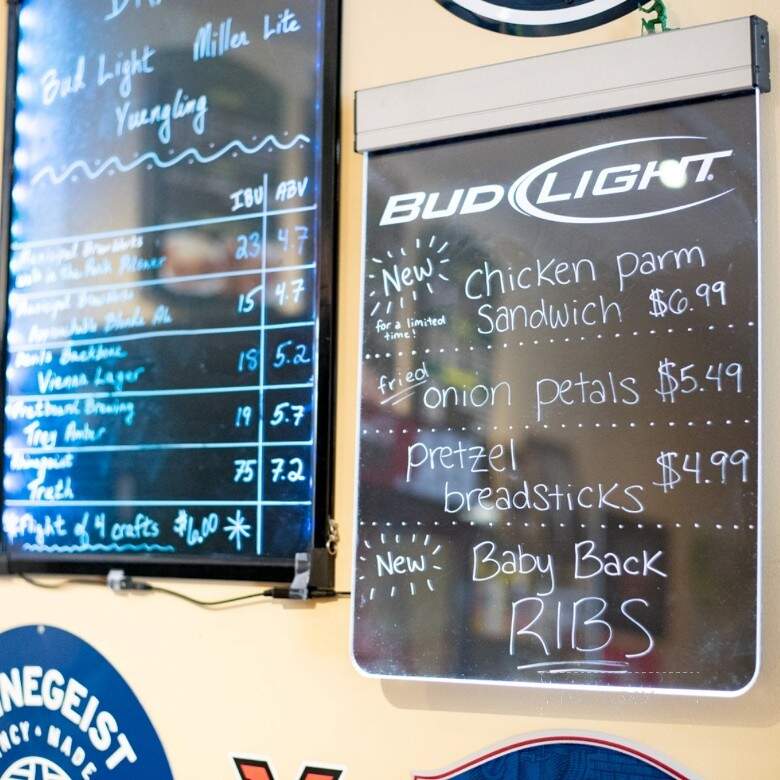 Miller Lite
Bud Light
Yuengling
IBU ABV
23 4.7
in The Park Pilsner
15 4.7
Blonde Ale
18 5.2
Vienna Lager
Brewing 19 5.7
Troy Amber
75 7.2
Truth
Flight of 4 crafts $6.00 *
BUD LIGHT
New
Chicken Parm
Sandwich $6.99
for a limited
time!
fried
onion petals $5.49
pretzel
breadsticks $4.99
New
Baby Back
RIBS
NEGEIST
NCY • MADE